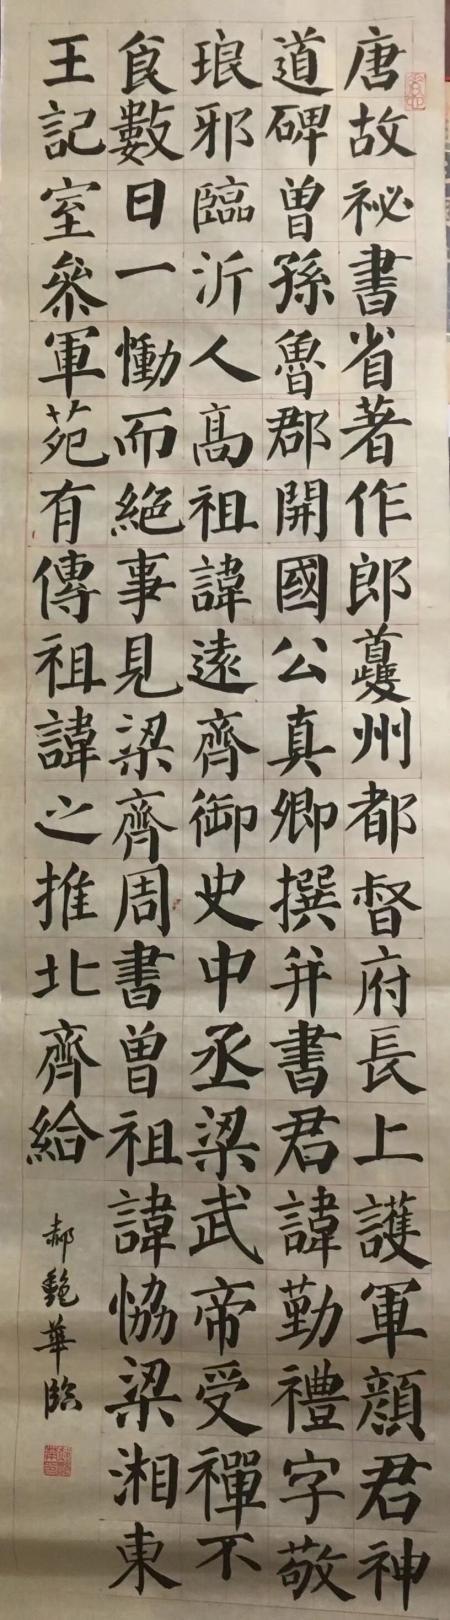 唐故祕書省著作郎夔州都督府長上護軍顏君神
道碑曾孫魯郡開國公真卿撰并書君諱勤禮字敬
琅邪臨沂人高祖諱遠齊御史中丞梁武帝受禪不
食數日一慟而絕事見梁齊周書曾祖諱恊梁湘東
王記室參軍苑有傳祖諱之推北齊給
郝艷華臨